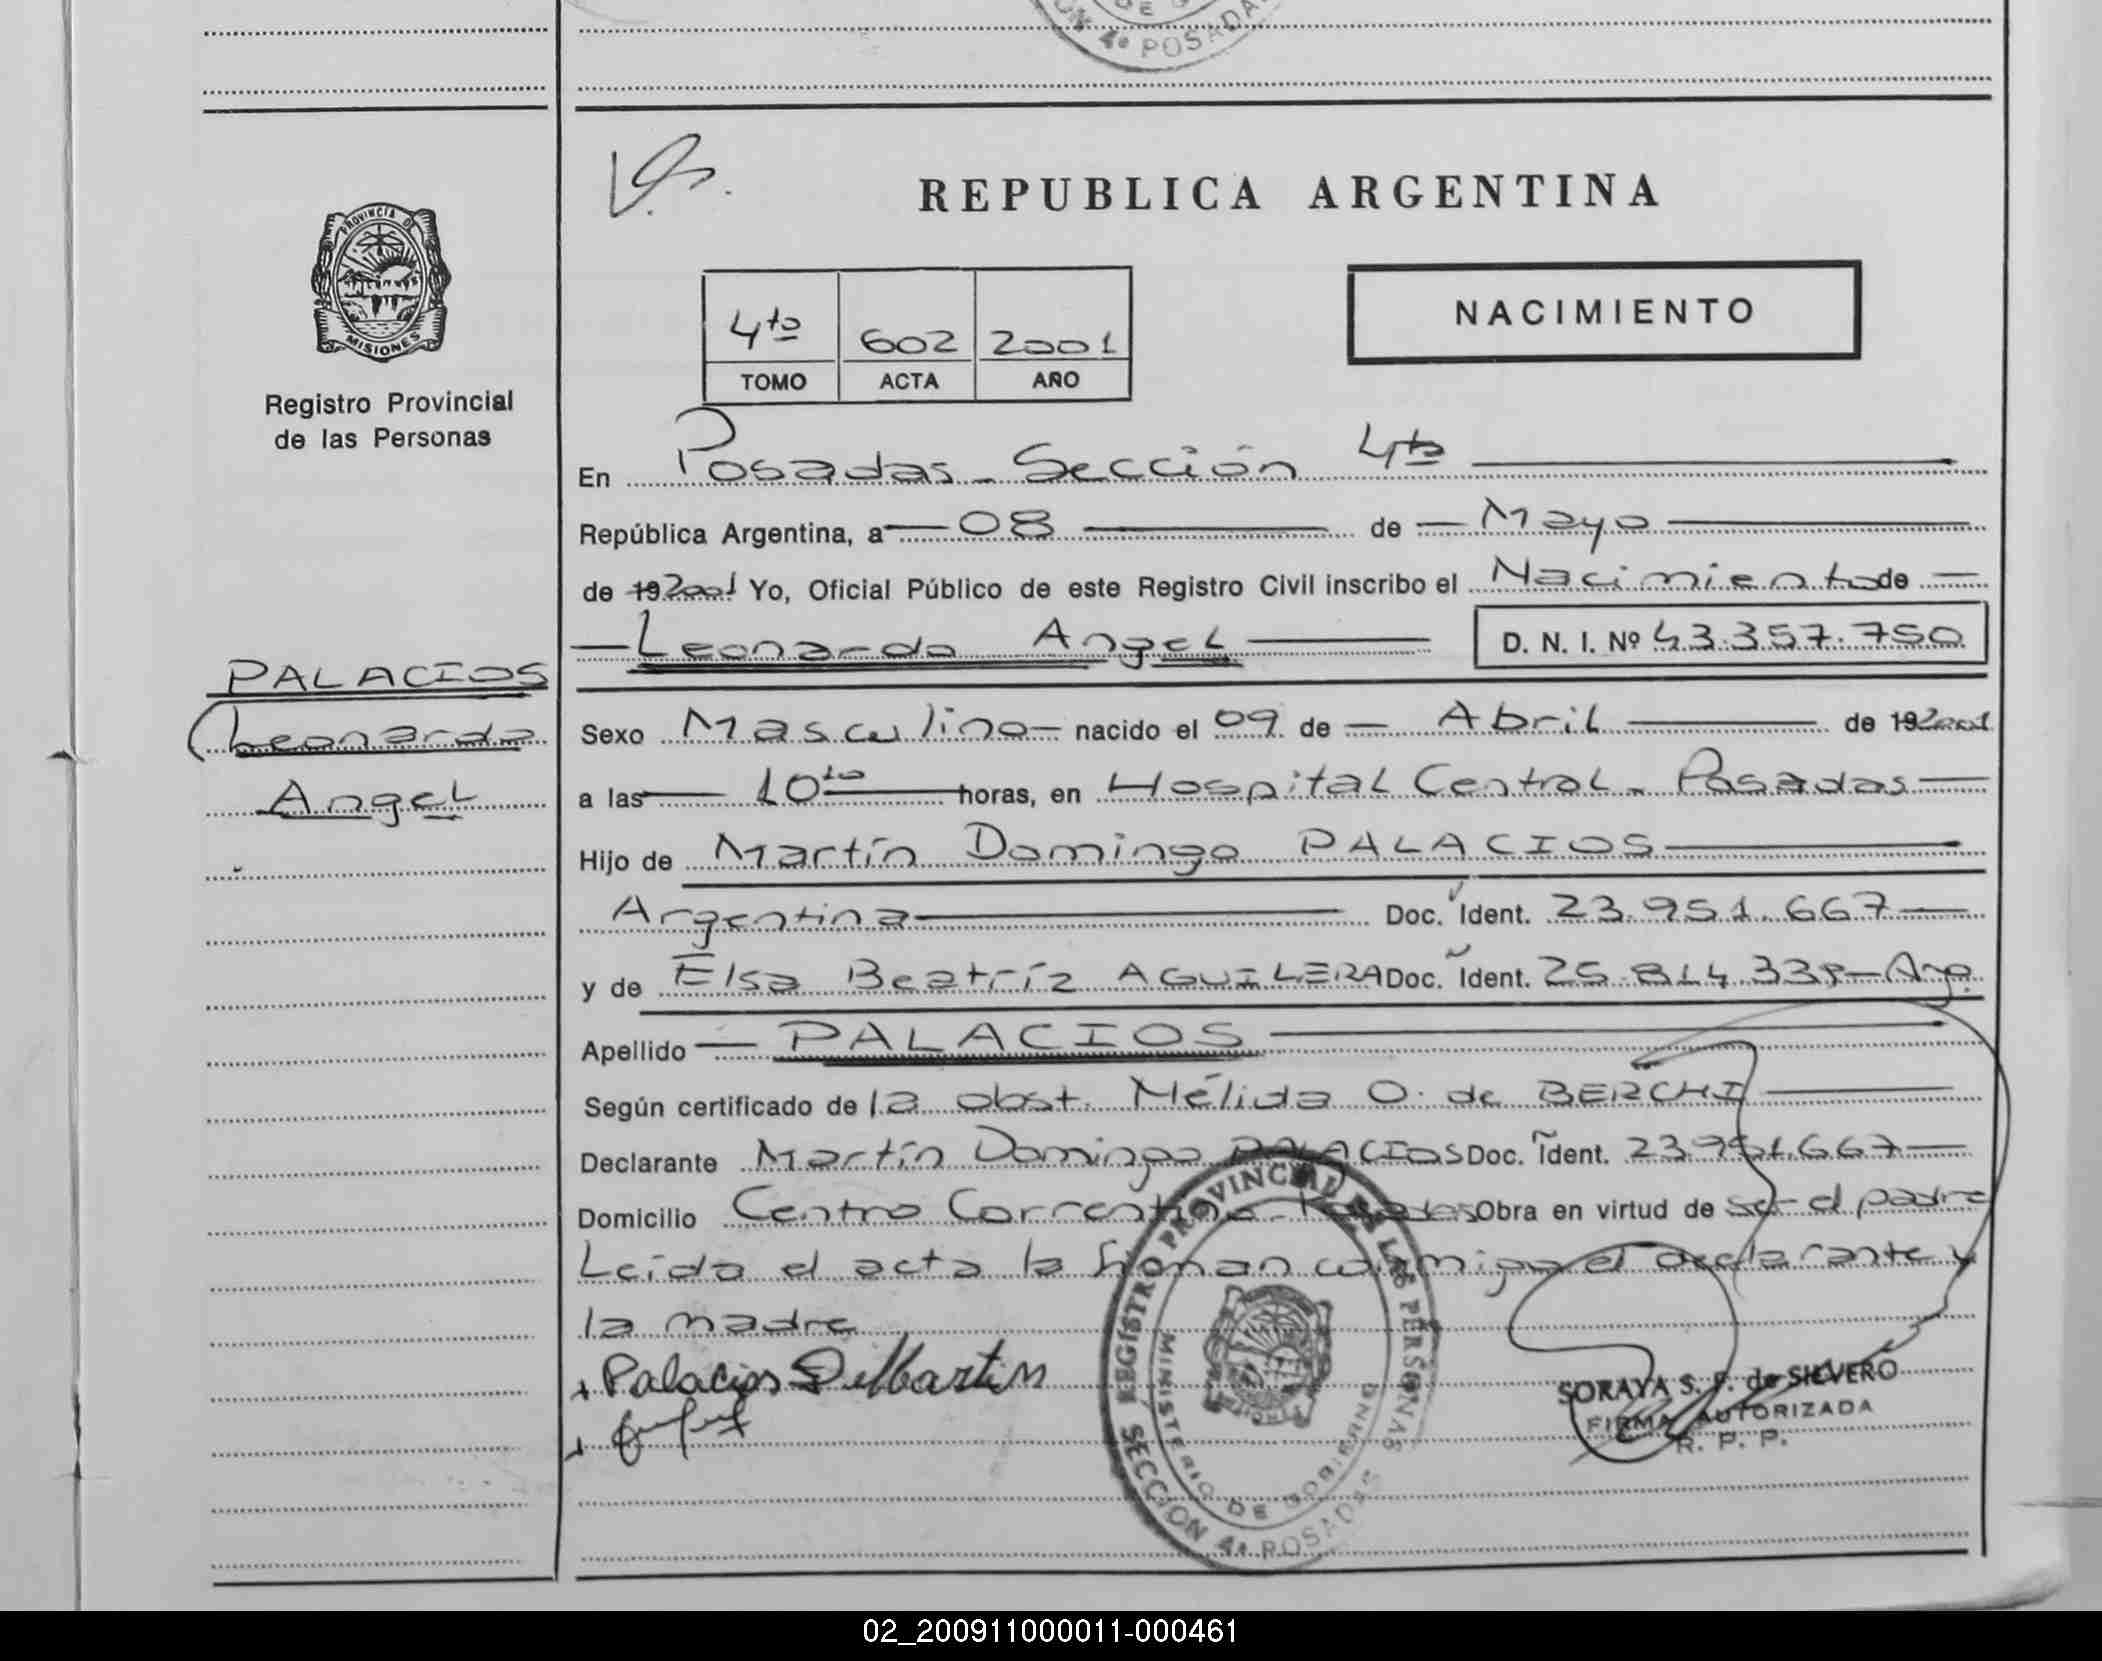 DE G
ON 4ª POSADA
REPUBLICA ARGENTINA
PROVINCIA D
MISIONES
Registro Provincial
de las Personas
NACIMIENTO
4to 602 2001
TOMO ACTA AÑO
En Posadas - Sección 4ta
República Argentina, a 08 de Mayo
de 19 2001 Yo, Oficial Público de este Registro Civil inscribo el Nacimiento de
Leonardo Angel D. N. I. Nº 43.357.750
PALACIOS
Leonardo
Angel
Sexo Masculino nacido el 09 de Abril de 19 2001
a las 10 horas, en Hospital Central - Posadas
Hijo de Martín Domingo PALACIOS
Argentina Doc. Ident. 23.951.667
y de Elsa Beatríz AGUILERA Doc. Ident. 25.814.338 - Arg.
Apellido PALACIOS
Según certificado de la obst. Mélida O. de BERCHI
Declarante Martín Domingo PALACIOS Doc. Ident. 23.951.667
Domicilio Centro Correntino - Posadas Obra en virtud de ser el padre
Leída el acta la firman conmigo el declarante y
la madre
Palacios D Martin
REGISTRO PROVINCIAL DE LAS PERSONAS
MINISTERIO DE GOBIERNO
MISIONES
SECCION 4ª POSADAS
SORAYA S. F. de SILVERO
FIRMA AUTORIZADA
R. P. P.
02_200911000011-000461